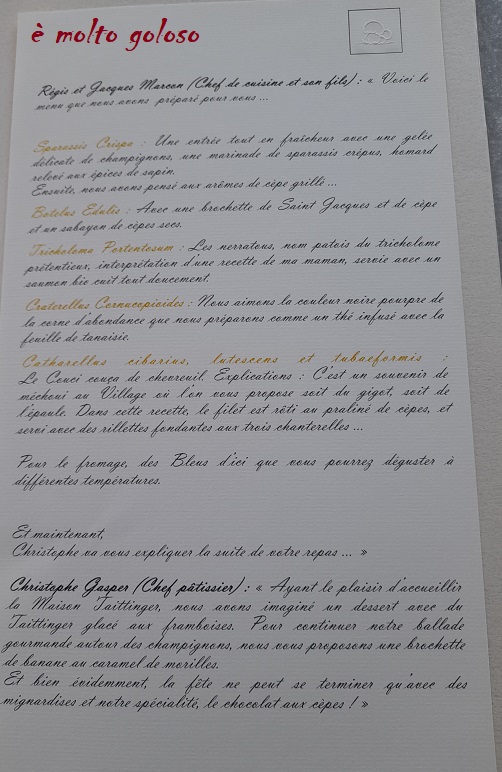 è molto goloso
Régis et Jacques Marcon (Chef de cuisine et son fils) : « Voici le
menu que nous avons préparé pour vous ...
Sparassis Crispa : Une entrée tout en fraîcheur avec une gelée
délicate de champignons, une marinade de sparassis crépus, homard
relevé aux épices de sapin.
Ensuite, nous avons pensé aux arômes de cèpe grillé ...
Botelus Edulis : Avec une brochette de Saint Jacques et de cèpe
et un sabayon de cèpes secs.
Tricholoma Portentosum : Les nerratous, nom patois du tricholome
prétentieux, interprétation d'une recette de ma maman, servie avec un
saumon bio cuit tout doucement.
Craterellus Cornucopioides : Nous aimons la couleur noire pourpre de
la corne d'abondance que nous préparons comme un thé infusé avec la
feuille de tanaisie.
Catharellus cibarius, lutescens et tubaeformis :
Le Couci couça de chevreuil. Explications : C'est un souvenir de
méchoui au Village où l'on vous propose soit du gigot, soit de
l'épaule. Dans cette recette, le filet est rôti au praliné de cèpes, et
servi avec des rillettes fondantes aux trois chanterelles ...
Pour le fromage, des Bleus d'ici que vous pourrez déguster à
différentes températures.
Et maintenant,
Christophe va vous expliquer la suite de votre repas ... »
Christophe Gasper (Chef pâtissier) : « Ayant le plaisir d'accueillir
la Maison Taittinger, nous avons imaginé un dessert avec du
Taittinger glacé aux framboises. Pour continuer notre ballade
gourmande autour des champignons, nous vous proposons une brochette
de banane au caramel de morilles.
Et bien évidemment, la fête ne peut se terminer qu'avec des
mignardises et notre spécialité, le chocolat aux cèpes ! »